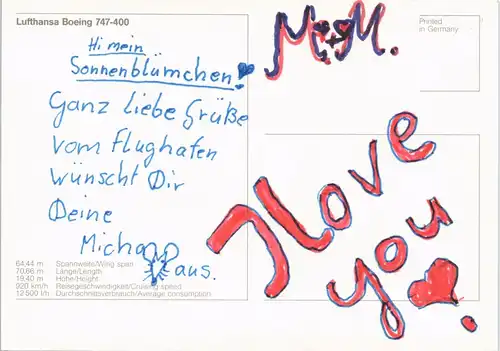 Lufthansa Boeing 747-400
Hi mein
Sonnenblümchen!
Ganz liebe Grüße
vom Flughafen
wünscht Dir
Deine
Micha aus.
64,44 m Spannweite/Wing span
70,66 m Länge/Length
19,40 m Höhe/Height
920 km/h Reisegeschwindigkeit/Cruising speed
12 500 l/h Durchschnittsverbrauch/Average consomption
M + M.
Printed
in Germany
I love
you.